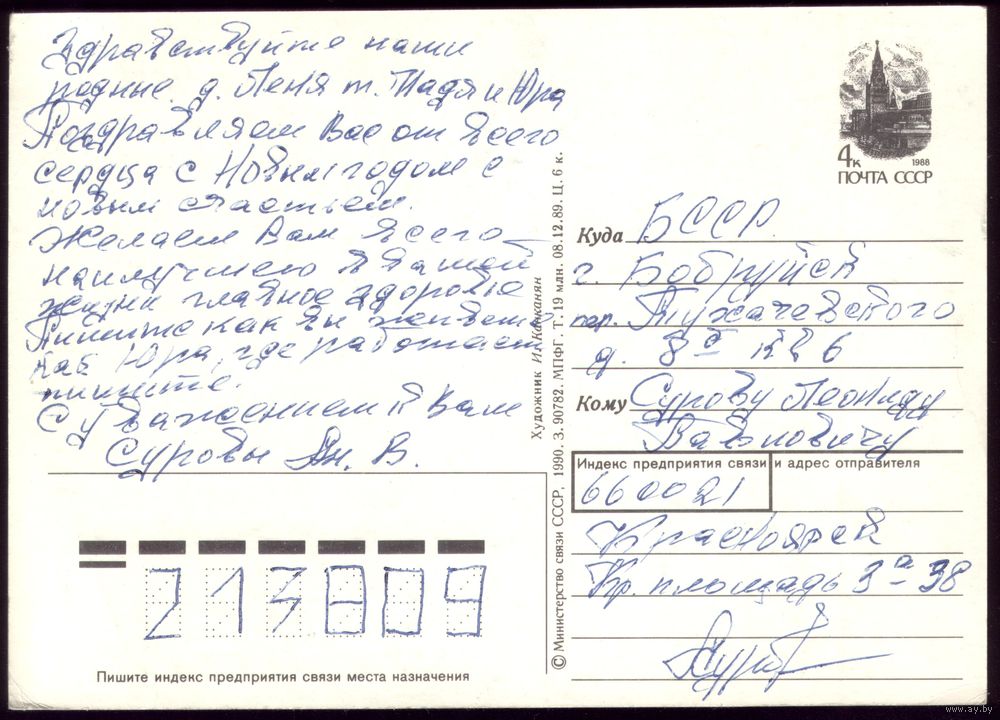 Здравствуйте наши
родные. д. Леня т. Надя и Юра
Поздравляем Вас от всего
сердца с Новым годом с
новым счастьем.
Желаем Вам всего
наилучшего в Вашей
жизни главное здоровье
Пишите как вы живете
как Юра, где работает
пишите.
С уважением к Вам
Суровы Ан. В.
4к
1988
ПОЧТА СССР
Куда БССР.
г. Бобруйск
пер. Тухачевского
д. 8а кв 6
Кому Сурову Леониду
Павловичу
Индекс предприятия связи и адрес отправителя
660021
Красноярск
Кр. площадь 3а-98
213809
Пишите индекс предприятия связи места назначения
© Министерство связи СССР, 1990. З. 90782. МПФГ Т. 19 млн. 08.12.89. Ц. 6 к.
Художник И. Канканян
www.ay.by